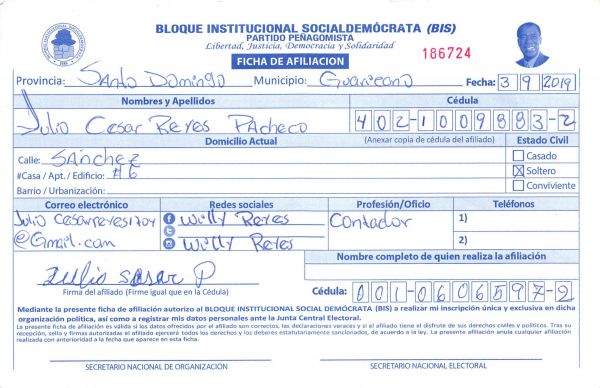 BLOQUE INSTITUCIONAL SOCIALDEMÓCRATA (BIS)
PARTIDO PEÑAGOMISTA
Libertad, Justicia, Democracia y Solidaridad
FICHA DE AFILIACION
186724
Provincia: Santo Domingo Municipio: Guaricano Fecha: 3 9 2019
Nombres y Apellidos Cédula
Julio Cesar Reyes Pacheco 402-1009883-2
Domicilio Actual (Anexar copia de cédula del afiliado) Estado Civil
Calle: Sánchez Casado
#Casa / Apt. / Edificio: #6 X Soltero
Barrio / Urbanización: Conviviente
Correo electrónico Redes sociales Profesión/Oficio Teléfonos
Julio Cesarreyes1704 Willy Reyes Contador 1)
@Gmail.com Willy Reyes 2)
Nombre completo de quien realiza la afiliación
Julio sesar P
Firma del afiliado (Firme igual que en la Cédula) Cédula: 001-0606597-2
Mediante la presente ficha de afiliación autorizo al BLOQUE INSTITUCIONAL SOCIAL DEMÓCRATA (BIS) a realizar mi inscripción única y exclusiva en dicha
organización política, así como a registrar mis datos personales ante la Junta Central Electoral.
La presente ficha de afiliación es válida si los datos ofrecidos por el afiliado son correctos, las declaraciones veraces y si el afiliado tiene el disfrute de sus derechos civiles y políticos. Tras su
recepción, sello y firmas autorizadas el afiliado ejercerá todos los derechos y los deberes estatutariamente sancionados, de acuerdo a la ley. La presente afiliación anula cualquier afiliación
realizada con anterioridad a la fecha que aparece en esta ficha.
SECRETARIO NACIONAL DE ORGANIZACIÓN SECRETARIO NACIONAL ELECTORAL